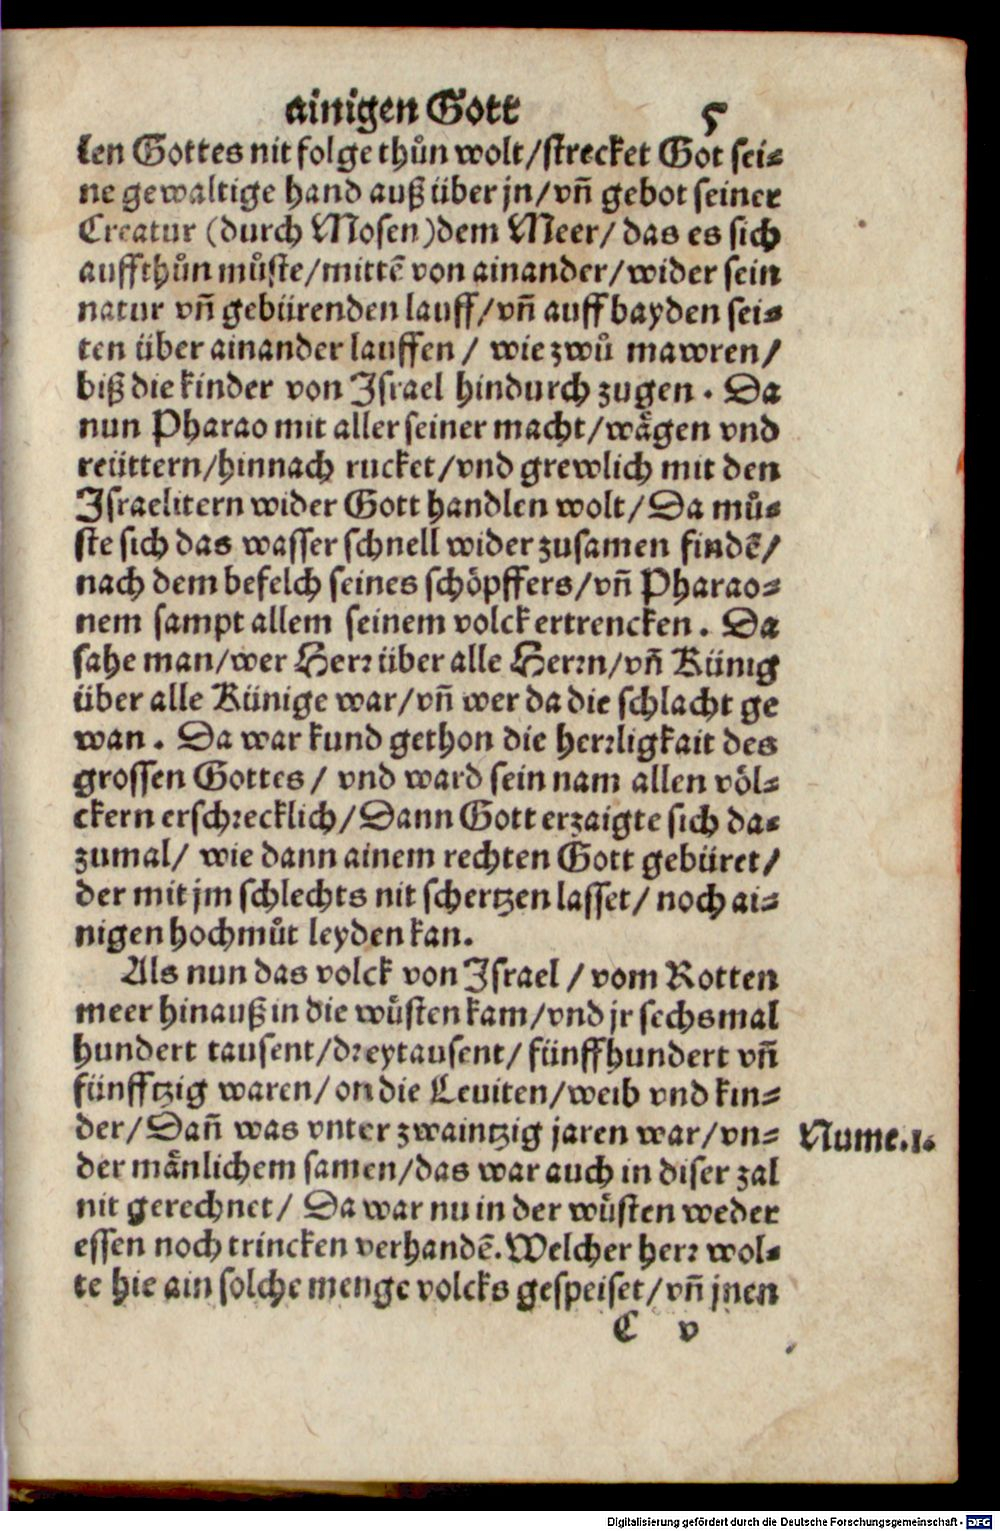 ainigen Gott 5
len Gottes nit folge thůn wolt/ strecket Got sei⸗
ne gewaltige hand auß über jn/ vñ gebot seiner
Creatur (durch Mosen) dem Meer/ das es sich
auffthůn můste/ mittẽ von ainander/ wider sein
natur vñ gebürenden lauff/ vñ auff bayden sei⸗
ten über ainander lauffen/ wie zwů mawren/
biß die kinder von Israel hindurch zugen. Da
nun Pharao mit aller seiner macht/ wägen vnd
reüttern/ hinnach rucket/ vnd grewlich mit den
Israelitern wider Gott handlen wolt/ Da mů⸗
ste sich das wasser schnell wider zusamen findẽ/
nach dem befelch seines schöpffers/ vñ Pharao⸗
nem sampt allem seinem volck ertrencken. Da
sahe man/ wer Herr über alle Herrn/ vñ Künig
über alle Künige war/ vñ wer da die schlacht ge
wan. Da war kund gethon die herrligkait des
grossen Gottes/ vnd ward sein nam allen völ⸗
ckern erschrecklich/ Dann Gott erzaigte sich da⸗
zumal/ wie dann ainem rechten Gott gebüret/
der mit jm schlechts nit schertzen lasset/ noch ai⸗
nigen hochmůt leyden kan.
Als nun das volck von Israel/ vom Rotten
meer hinauß in die wůsten kam/ vnd jr sechsmal
hundert tausent/ dreytausent/ fünffhundert vñ
fünfftzig waren/ on die Leuiten/ weib vnd kin⸗
der/ Dañ was vnter zwaintzig jaren war/ vn⸗ Nume.1.
der mänlichem samen/ das war auch in diser zal
nit gerechnet/ Da war nu in der wůsten weder
essen noch trincken verhandẽ. Welcher herr wol⸗
te hie ain solche menge volcks gespeiset/ vñ jnen
C v
Digitalisierung gefördert durch die Deutsche Forschungsgemeinschaft - DFG